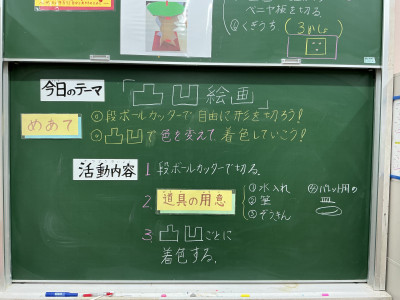 ベニヤ板を切る。
くぎうち。(3かしょ)
今日のテーマ
「凸凹絵画」
めあて
◎段ボールカッターで自由に形を切ろう!
◎凸凹で色を変えて、着色していこう!
活動内容
1. 段ボールカッターで切る。
2. 道具の用意
①水入れ
②筆
③ぞうきん
パレット用の
皿
3. 凸凹ごとに
着色する。